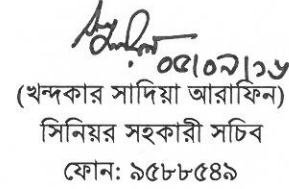 ০৫।০৯।১৬
(খন্দকার সাদিয়া আরাফিন)
সিনিয়র সহকারী সচিব
ফোন: ৯৫৮৮৫৪৯